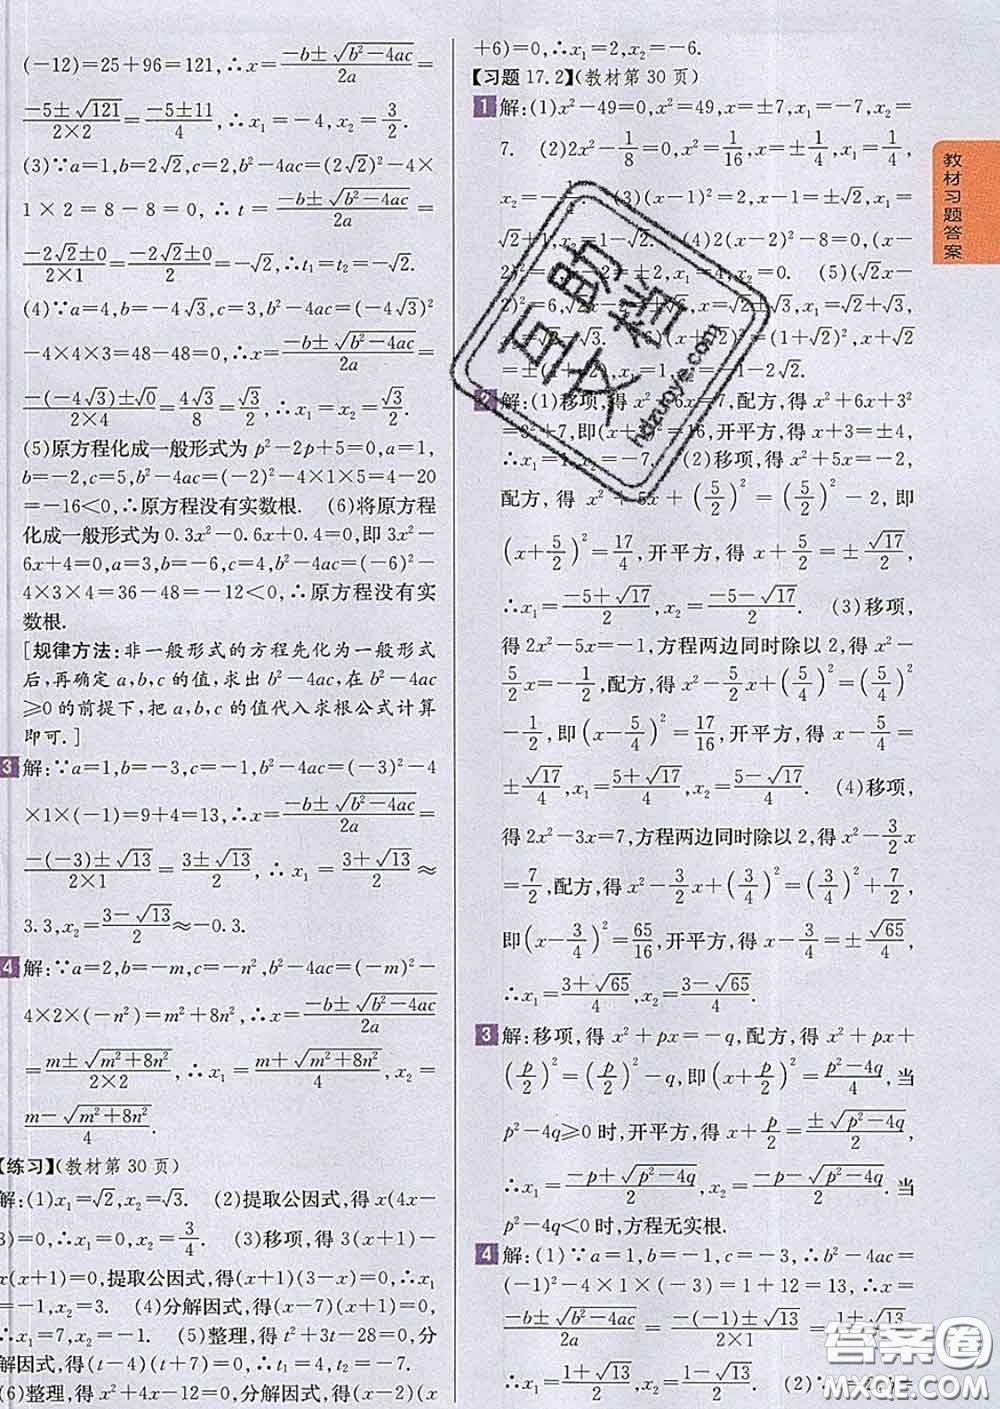 (-12)=25+96=121,∴x=\frac{-b±\sqrt{b²-4ac}}{2a}=
\frac{-5±\sqrt{121}}{2×2}=\frac{-5±11}{4},∴x₁=-4,x₂=\frac{3}{2}.
(3)∵a=1,b=2√2,c=2,b²-4ac=(2√2)²-4×
1×2=8-8=0,∴t=\frac{-b±\sqrt{b²-4ac}}{2a}=
\frac{-2√2±0}{2×1}=\frac{-2√2±0}{2}=-√2,∴t₁=t₂=-√2.
(4)∵a=4,b=-4√3,c=3,b²-4ac=(-4√3)²
-4×4×3=48-48=0,∴x=\frac{-b±\sqrt{b²-4ac}}{2a}=
\frac{-(-4√3)±√0}{2×4}=\frac{4√3}{8}=\frac{√3}{2},∴x₁=x₂=\frac{√3}{2}.
(5)原方程化成一般形式为p²-2p+5=0,a=1,
b=-2,c=5,b²-4ac=(-2)²-4×1×5=4-20
=-16<0,∴原方程没有实数根. (6)将原方程
化成一般形式为0.3x²-0.6x+0.4=0,即3x²-
6x+4=0,a=3,b=-6,c=4,b²-4ac=(-6)²-
4×3×4=36-48=-12<0,∴原方程没有实
数根.
[规律方法:非一般形式的方程先化为一般形式
后,再确定a,b,c的值,求出b²-4ac,在b²-4ac
≥0的前提下,把a,b,c的值代入求根公式计算
即可.]
3 解:∵a=1,b=-3,c=-1,b²-4ac=(-3)²-4
×1×(-1)=9+4=13,∴x=\frac{-b±\sqrt{b²-4ac}}{2a}=
\frac{-(-3)±√13}{2×1}=\frac{3±√13}{2},∴x₁=\frac{3+√13}{2}≈
3.3,x₂=\frac{3-√13}{2}≈-0.3.
4 解:∵a=2,b=-m,c=-n²,b²-4ac=(-m)²-
4×2×(-n²)=m²+8n²,∴x=\frac{-b±\sqrt{b²-4ac}}{2a}
=\frac{m±\sqrt{m²+8n²}}{2×2},∴x₁=\frac{m+\sqrt{m²+8n²}}{4},x₂=
\frac{m-\sqrt{m²+8n²}}{4}.
【练习】(教材第30页)
解:(1)x₁=√2,x₂=√3. (2)提取公因式,得x(4x-
3)=0,∴x₁=0,x₂=\frac{3}{4}. (3)移项,得3(x+1)-
x(x+1)=0,提取公因式,得(x+1)(3-x)=0,∴x₁
=-1,x₂=3. (4)分解因式,得(x-7)(x+1)=0,
∴x₁=7,x₂=-1. (5)整理,得t²+3t-28=0,分
解因式,得(t-4)(t+7)=0,∴t₁=4,t₂=-7.
(6)整理,得x²+4x-12=0,分解因式,得(x-2)(x
+6)=0,∴x₁=2,x₂=-6.
【习题17.2】(教材第30页)
1 解:(1)x²-49=0,x²=49,x=±7,x₁=-7,x₂=
7. (2)2x²-\frac{1}{8}=0,x²=\frac{1}{16},x=±\frac{1}{4},x₁=\frac{1}{4},
x₂=-\frac{1}{4}. (3)(x-1)²=2,x-1=±√2,x₁=
√2+1,x₂=1-√2. (4)2(x-2)²-8=0,(x-
2)²=4,x-2=±2,x₁=4,x₂=0. (5)(√2x-
2)²=6,√2x-2=±√6,x=√2±√3,x₁=√2+√3,
x₂=√2-√3. (6)(x+√2)²=(1+√2)²,x+√2
=±(1+√2),x₁=1,x₂=-1-2√2.
2 解:(1)移项,得x²+6x=7,配方,得x²+6x+3²
=3²+7,即(x+3)²=16,开平方,得x+3=±4,
∴x₁=1,x₂=-7. (2)移项,得x²+5x=-2,
配方,得x²+5x+(\frac{5}{2})²=(\frac{5}{2})²-2,即
(x+\frac{5}{2})²=\frac{17}{4},开平方,得x+\frac{5}{2}=±\frac{√17}{2},
∴x₁=\frac{-5+√17}{2},x₂=\frac{-5-√17}{2}. (3)移项,
得2x²-5x=-1,方程两边同时除以2,得x²-
\frac{5}{2}x=-\frac{1}{2},配方,得x²-\frac{5}{2}x+(\frac{5}{4})²=(\frac{5}{4})²
-\frac{1}{2},即(x-\frac{5}{4})²=\frac{17}{16},开平方,得x-\frac{5}{4}=
±\frac{√17}{4},x₁=\frac{5+√17}{4},x₂=\frac{5-√17}{4}. (4)移项,
得2x²-3x=7,方程两边同时除以2,得x²-\frac{3}{2}x
=\frac{7}{2},配方,得x²-\frac{3}{2}x+(\frac{3}{4})²=(\frac{3}{4})²+\frac{7}{2},
即(x-\frac{3}{4})²=\frac{65}{16},开平方,得x-\frac{3}{4}=±\frac{√65}{4},
∴x₁=\frac{3+√65}{4},x₂=\frac{3-√65}{4}.
3 解:移项,得x²+px=-q,配方,得x²+px+
(\frac{p}{2})²=(\frac{p}{2})²-q,即(x+\frac{p}{2})²=\frac{p²-4q}{4},当
p²-4q≥0时,开平方,得x+\frac{p}{2}=\frac{±\sqrt{p²-4q}}{2},
∴x₁=\frac{-p+\sqrt{p²-4q}}{2},x₂=\frac{-p-\sqrt{p²-4q}}{2}.当
p²-4q<0时,方程无实根.
4 解:(1)∵a=1,b=-1,c=-3,∴b²-4ac=
(-1)²-4×1×(-3)=1+12=13,∴x=
\frac{-b±\sqrt{b²-4ac}}{2a}=\frac{-(-1)±√13}{2×1}=\frac{1±√13}{2},
∴x₁=\frac{1+√13}{2},x₂=\frac{1-√13}{2}. (2)∵
教材习题答案
互助文档
hdzuoye.com
答案圈
MXQE.COM